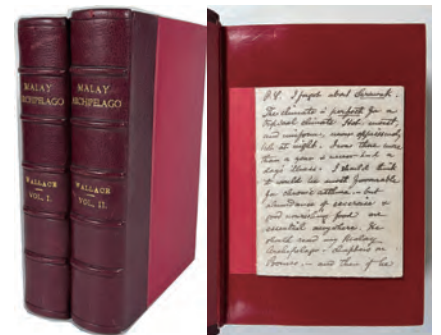 MALAY
ARCHIPELAGO
WALLACE
VOL. I.
MALAY
ARCHIPELAGO
WALLACE
VOL. II.
P.S. I forgot about Sarawak.
The climate is perfect for a
tropical climate. Hot, moist,
and uniform, never oppressively
hot at night. I was there more
than a year & never had a
day's illness. I should think
it would be most favourable
for chronic asthma, - but
abundance of exercise &
good nourishing food are
essential everywhere. He
should read my Malay
Archipelago - chapters on
Borneo, - and then if he